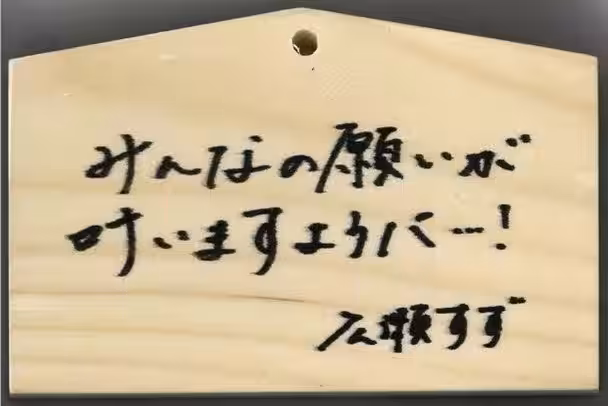 みんなの願いが
叶いますように…!
広瀬すず